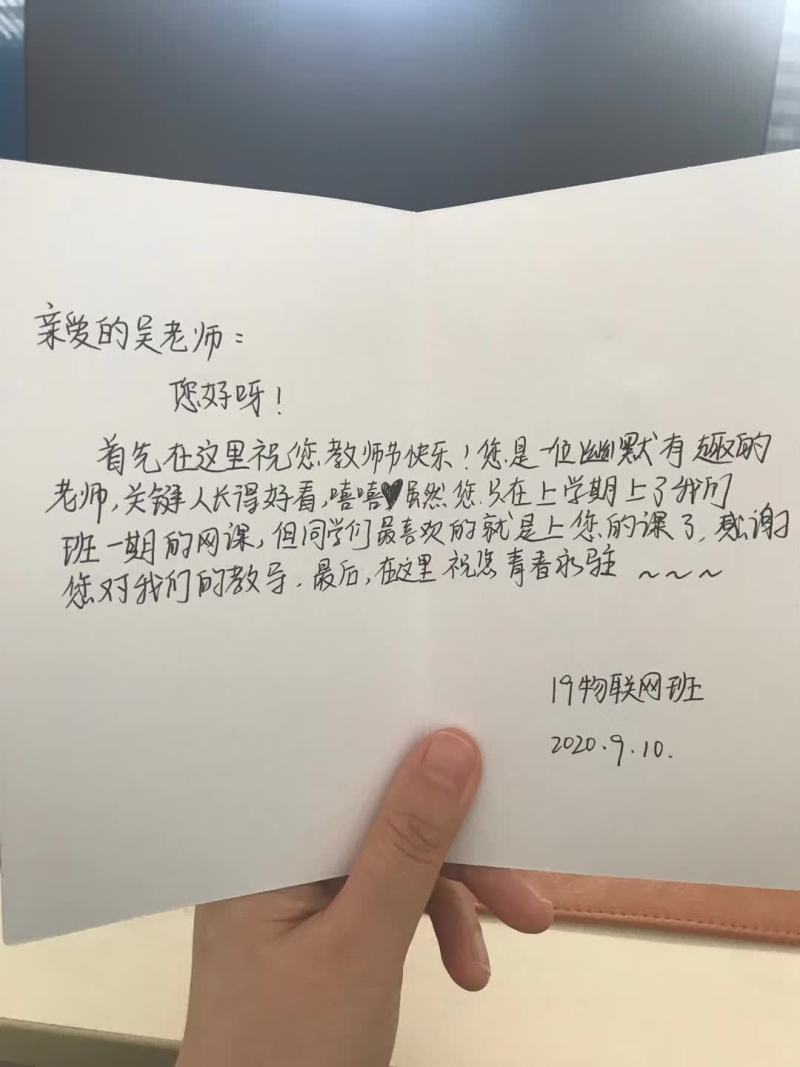 亲爱的吴老师：
您好呀！
首先在这里祝您教师节快乐！您是一位幽默有趣的
老师，关键人长得好看，嘻嘻♥虽然您只在上学期上了我们
班一期的网课，但同学们最喜欢的就是上您的课了，感谢
您对我们的教导．最后，在这里祝您青春永驻～～～
19物联网班
2020.9.10.